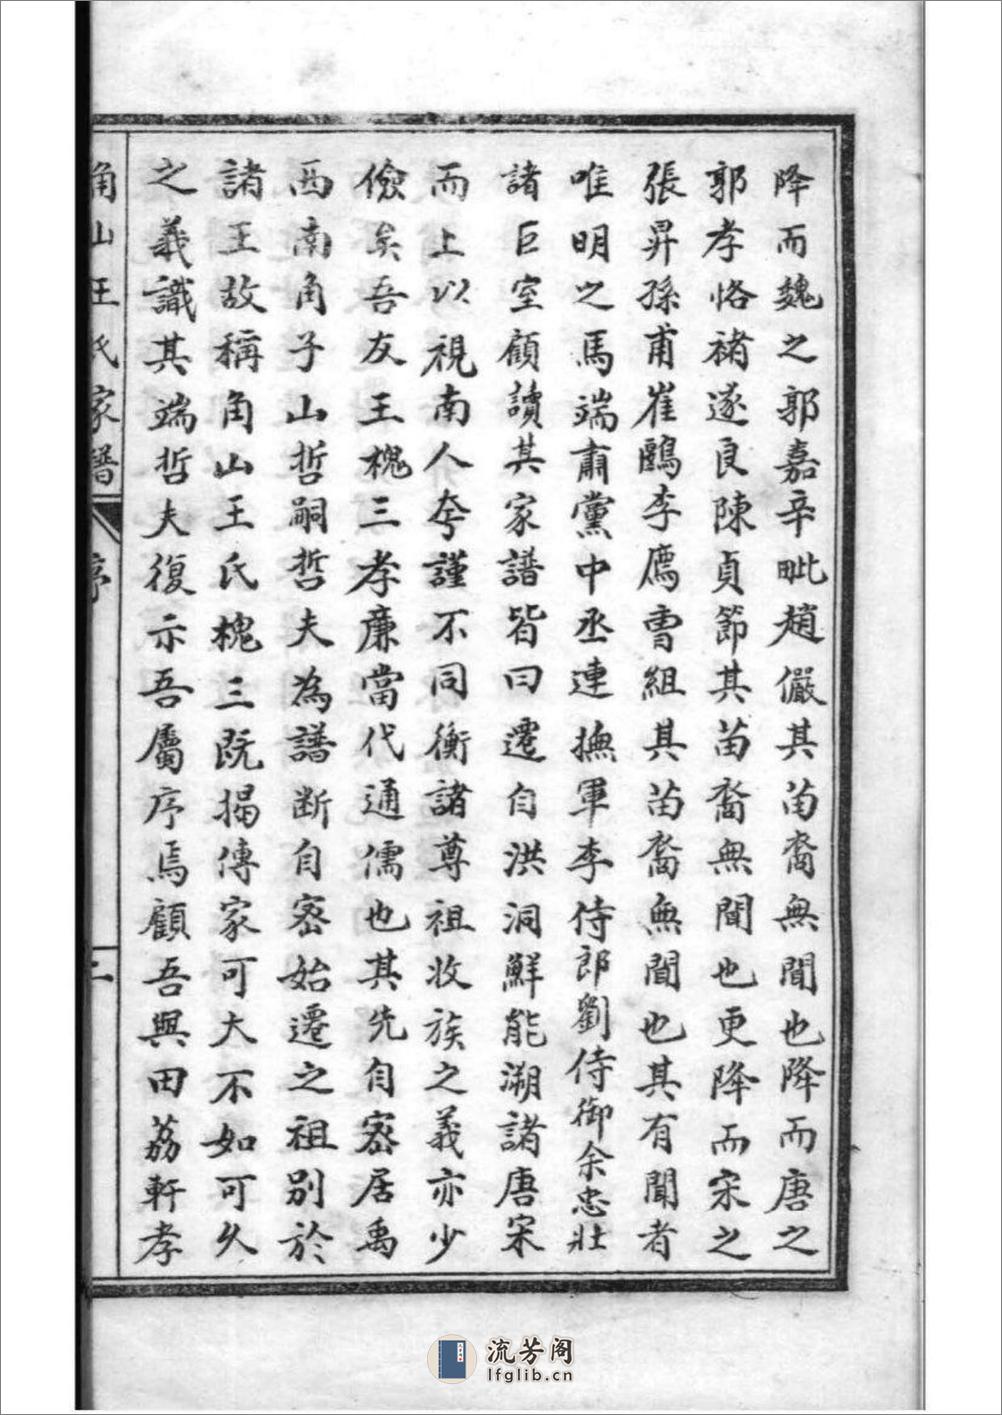 降而魏之郭嘉辛毗趙儼其苗裔無聞也降而唐之
郭孝恪褚遂良陳貞節其苗裔無聞也更降而宋之
張昇孫甫崔鶠李廌曹組其苗裔無聞也其有聞者
唯明之馬端肅黨中丞連撫軍李侍郎劉侍御余忠壯
諸巨室顧讀其家譜皆曰遷自洪洞鮮能溯諸唐宋
而上以視南人夸謹不同衡諸尊祖收族之義亦少
儉矣吾友王槐三孝廉當代通儒也其先自密居禹
西南角子山哲嗣哲夫為譜斷自密始遷之祖別於
諸王故稱角山王氏槐三既揭傳家可大不如可久
之義識其端哲夫復示吾屬序焉顧吾與田荔軒孝
角山王氏家譜 序 二
流芳阁
lfglib.cn